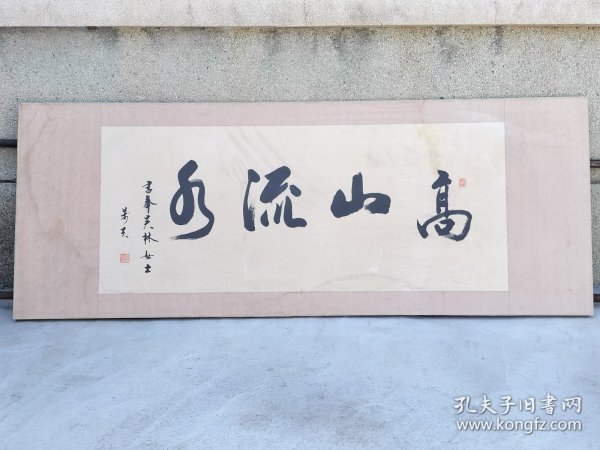 高山流水
書奉炎林女士
孔夫子旧书网
www.kongfz.com